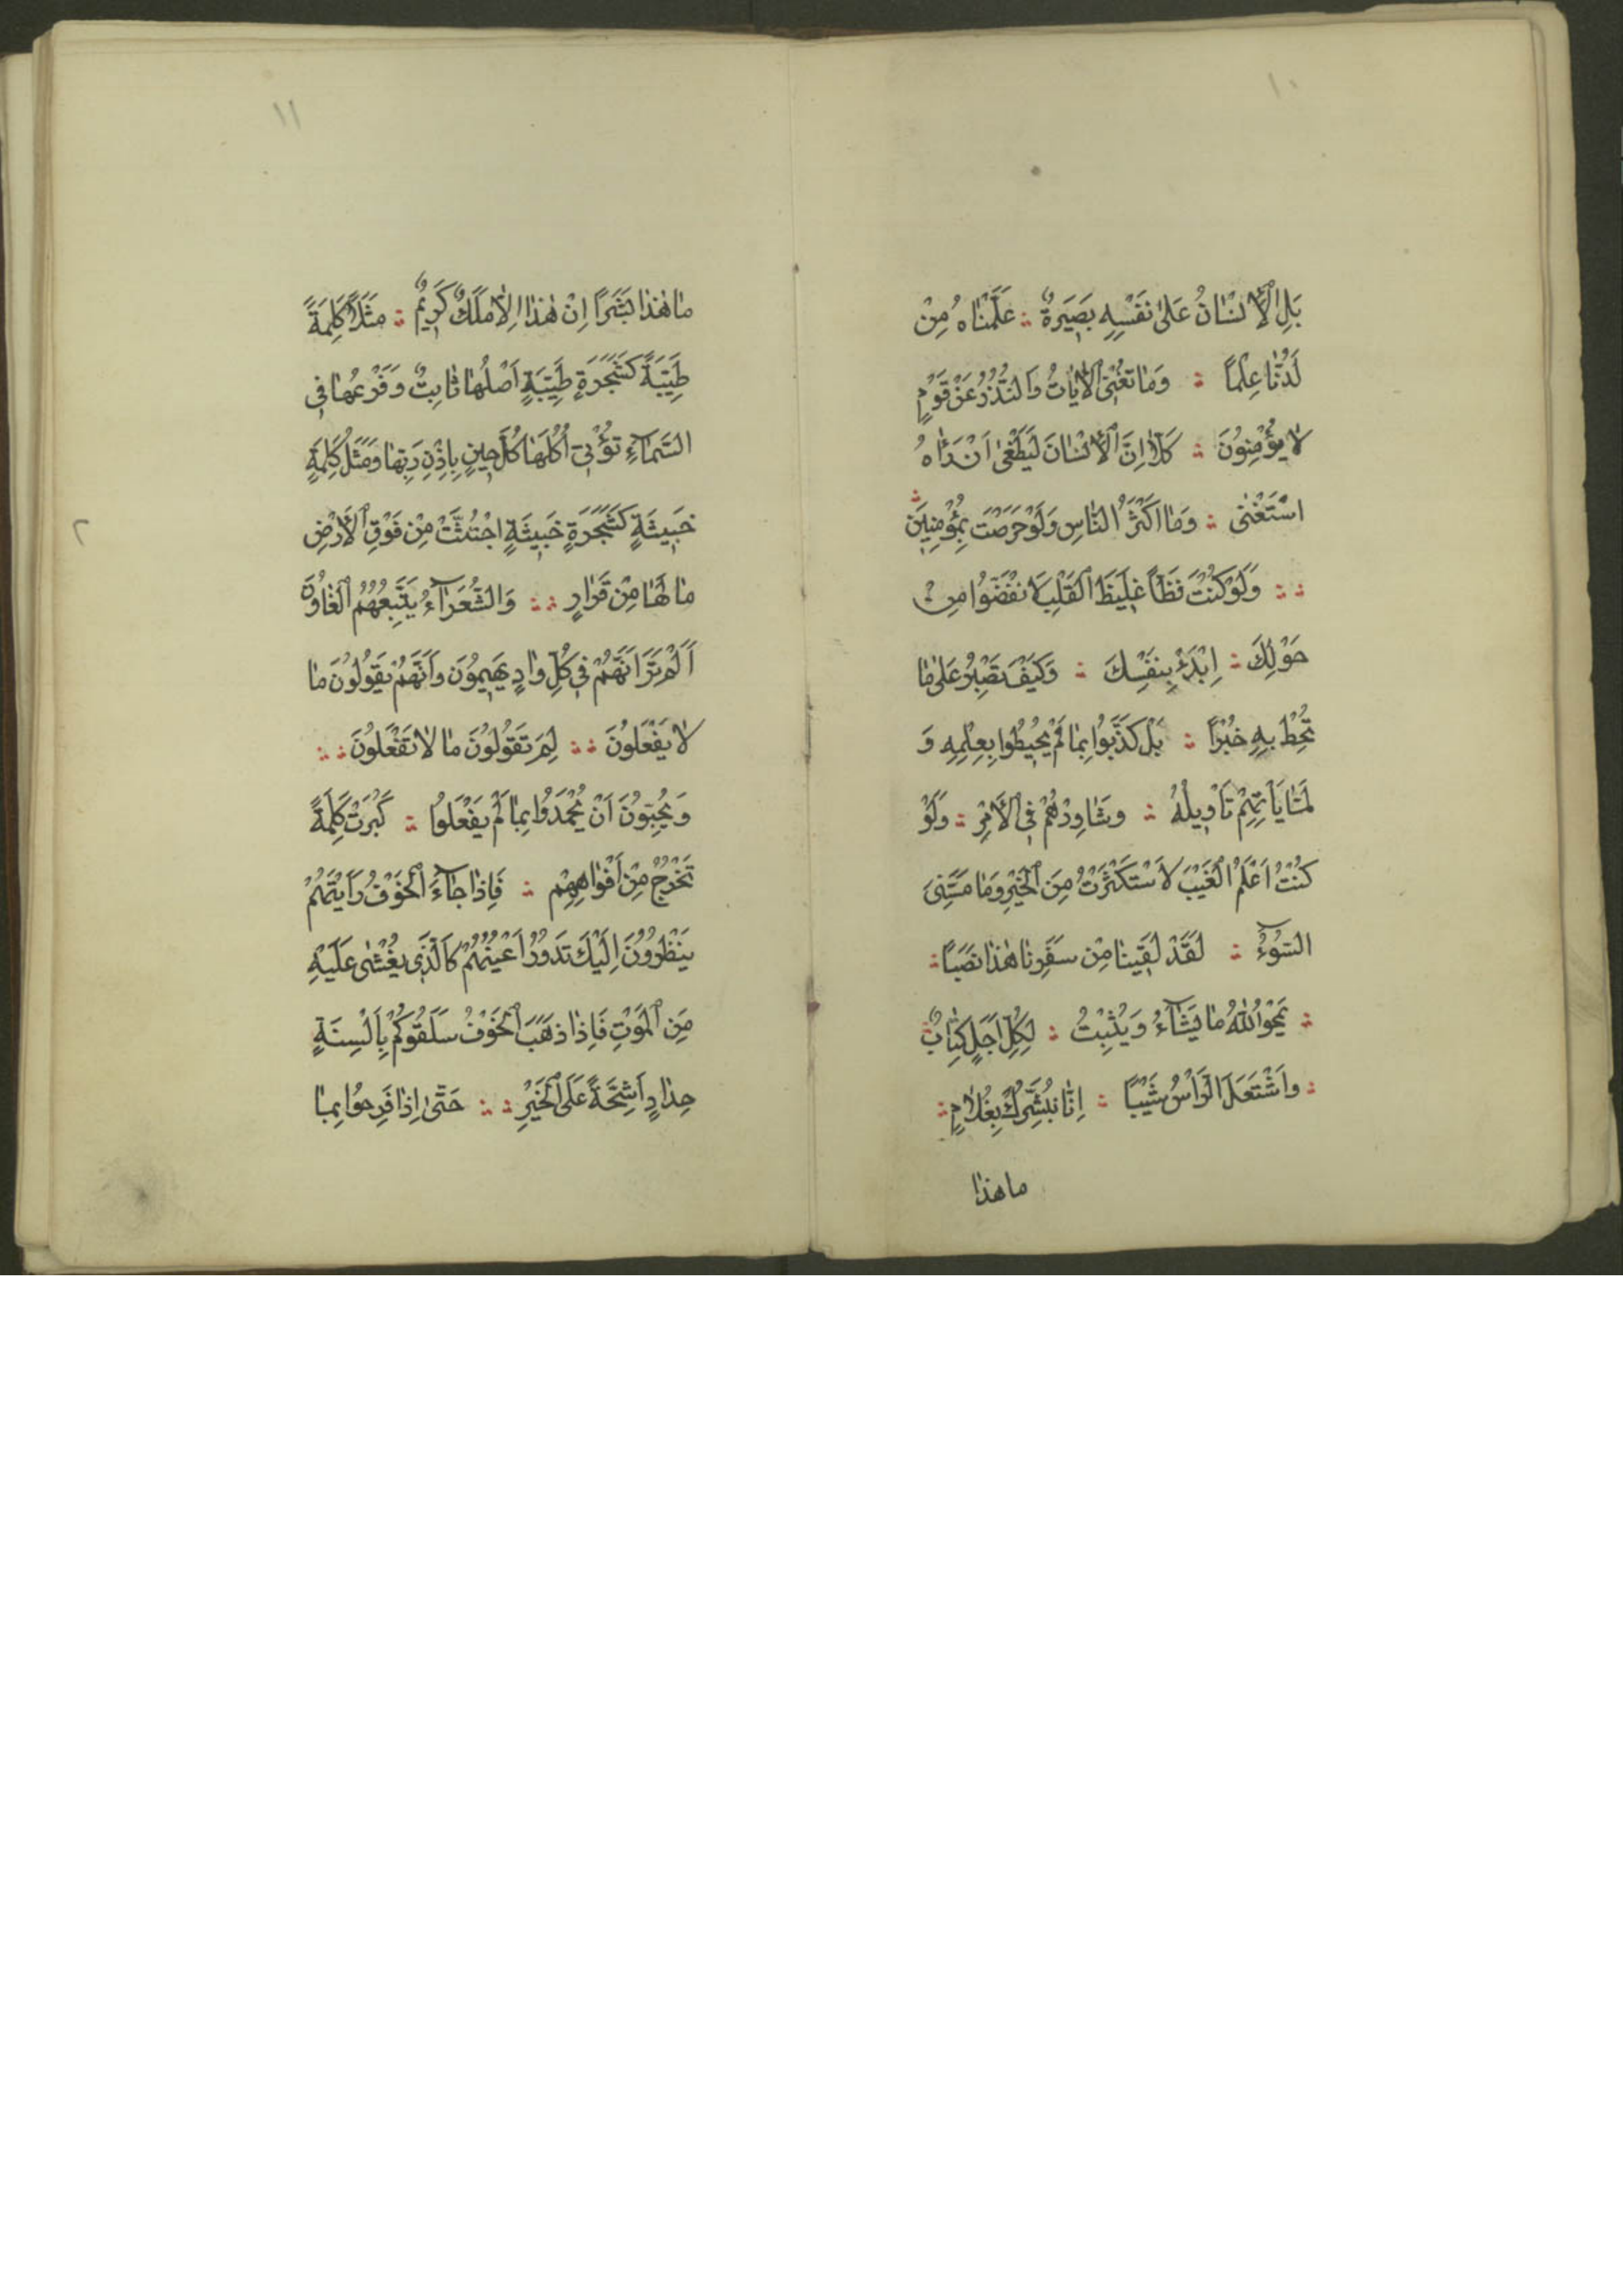 ١٠
بَلِ ٱلْأِنْسٰانُ عَلىٰ نَفْسِهِ بَصِيَرةٌ ؞ عَلَّمْنٰاهُ مِنْ
لَدُنّٰا عِلْماً ؞ وَمٰا تُغْنِى ٱلْاٰيٰاتُ وَالنُّذُرُ عَنْ قَوْمٍ
لٰا يُؤْمِنُونَ ؞ كَلّٰا اِنَّ ٱلْأِنْسٰانَ لَيَطْغىٰ اَنْ رَاٰهُ
اسْتَغْنىٰ ؞ وَمٰا اَكْثَرُ النّٰاسِ وَلَوْ حَرَصْتَ بِمُؤْمِنِيَن ؞
؞ ؞ وَلَوْ كُنْتَ فَظّاً غَلِيَظ ٱلْقَلْبِ لَانْفَضُّوا مِنْ
حَوْلِكَ ؞ اِبْدَءْ بِنَفْسِكَ ؞ وَكَيْفَ تَصْبِرُ عَلىٰ مٰا
تُحِطْ بِهِ خُبْراً ؞ بَلْ كَذَّبُوا بِمٰا لَمْ يُحِيُطوا بِعِلْمِهِ وَ
لَمّٰا يَأْتِهِمْ تَأْوِيلُهُ ؞ وَشٰاوِرْهُمْ فِى ٱلْأَمْرِ ؞ وَلَوْ
كُنْتُ اَعْلَمُ ٱلْغَيْبَ لَاسْتَكْثَرْتُ مِنَ ٱلْخَيْرِ وَمٰا مَسَّنِىَ
السُّوۤءُ ؞ لَقَدْ لَقِينٰا مِنْ سَفَرِنٰا هٰذٰا نَصَباً ؞
؞ يَمْحُوا اللّٰهُ مٰا يَشٰاۤءُ وَيُثْبِتُ ؞ لِكُلِّ اَجَلٍ كِتٰابٌ ؞
؞ وَاشْتَعَلَ الرَّأْسُ شَيْباً ؞ اِنّٰا نُبَشِّرُكَ بِغُلٰامٍ ؞
ماهذا
١١
مٰا هٰذٰا بَشَراً اِنْ هٰذٰا اِلّٰا مَلَكٌ كَرِيمٌ ؞ مَثَلًا كَلِمَةً
طَيِّبَةً كَشَجَرَةٍ طَيِّبَةٍ اَصْلُهٰا ثٰابِتٌ وَفَرْعُهٰا فِى
السَّمٰاۤءِ تُؤْتِى اُكُلَهٰا كُلَّ حِينٍ بِاِذْنِ رَبِّهٰا وَمَثَلُ كَلِمَةٍ
خَبِيثَةٍ كَشَجَرَةٍ خَبِيثَةٍ اجْتُثَّتْ مِنْ فَوْقِ ٱلْأَرْضِ
مٰا لَهٰا مِنْ قَرٰارٍ ؞ ؞ وَالشُّعَرٰاۤءُ يَتَّبِعُهُمُ ٱلْغٰاوُنَ
اَلَمْ تَرَ اَنَّهُمْ فِى كُلِّ وٰادٍ يَهِيمُونَ وَاَنَّهُمْ يَقُولُونَ مٰا
لٰا يَفْعَلُونَ ؞ ؞ لِمَ تَقُولُونَ مٰا لٰا تَفْعَلُونَ ؞ ؞
وَيُحِبُّونَ اَنْ يُحْمَدُوا بِمٰا لَمْ يَفْعَلُوا ؞ كَبُرَتْ كَلِمَةً
تَخْرُجُ مِنْ اَفْوٰاهِهِمْ ؞ فَاِذٰا جٰاۤءَ ٱلْخَوْفُ رَاَيْتَهُمْ
يَنْظُرُونَ اِلَيْكَ تَدُورُ اَعْيُنُهُمْ كَالَّذِى يُغْشىٰ عَلَيْهِ
مِنَ ٱلْمَوْتِ فَاِذٰا ذَهَبَ ٱلْخَوْفُ سَلَقُوكُمْ بِاَلْسِنَةٍ
حِدٰادٍ اَشِحَّةً عَلَى ٱلْخَيْرِ ؞ ؞ حَتّىٰ اِذٰا فَرِحُوا بِمٰا
٢